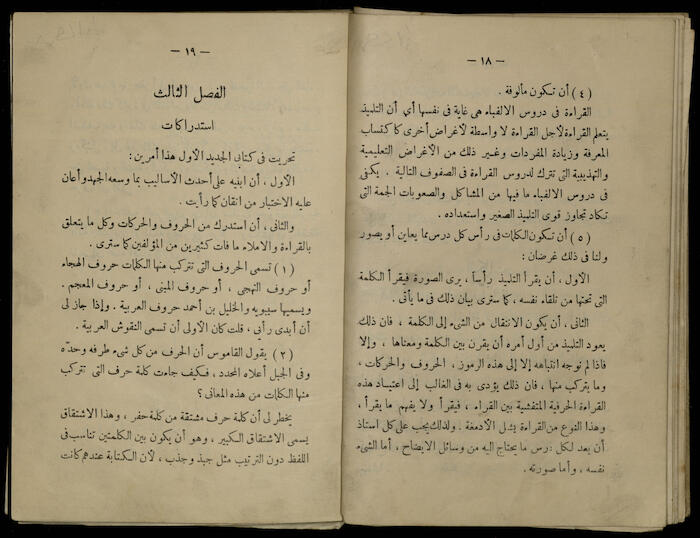 — ١٨ —
(٤) أن تكون مألوفة .
القراءة فى دروس الالفباء هى غاية فى نفسها أي أن التلميذ
يتعلم القراءة لأجل القراءة لا واسطة لأغراض أخرى كاكتساب
المعرفة وزيادة المفردات وغير ذلك من الأغراض التعليمية
والتهذيبية التى تترك لدروس القراءة فى الصفوف التالية . يكفى
فى دروس الالفباء ما فيها من المشاكل والصعوبات الجمة التى
تكاد تجاوز قوى التلميذ الصغير واستعداده .
(٥) أن تكون الكلمات فى رأس كل درس مما يعاين أو يصور
ولنا فى ذلك غرضان :
الأول ، أن يقرأ التلميذ رأساً . يرى الصورة فيقرأ الكلمة
التى تحتها من تلقاء نفسه ، كما سترى بيان ذلك فى ما يأتى .
الثانى . أن يكون الانتقال من الشىء إلى الكلمة ، فان ذلك
يعود التلميذ من أول أمره أن يقرن بين الكلمة ومعناها ، وإلا
فاذا لم توجه انتباهه إلا إلى هذه الرموز ، الحروف والحركات ،
وما يتركب منها ، فان ذلك يؤدى به فى الغالب إلى اعتياد هذه
القراءة الحرفية المتفشية بين القراء ، فيقرأ ولا يفهم ما يقرأ ،
وهذا النوع من القراءة يشل الأدمغة . ولذلك يجب على كل استاذ
أن يعد لكل درس ما يحتاج اليه من وسائل الايضاح ، أما الشىء
نفسه ، وأما صورته .
— ١٩ —
الفصل الثالث
استدراكات
تحريت فى كتابى الجديد الأول هذا أمرين :
الأول ، أن ابنيه على أحدث الأساليب بما وسعه الجهد وأعان
عليه الاختبار من اتقان كما رأيت .
والثانى ، أن استدرك من الحروف والحركات وكل ما يتعلق
بالقراءة والاملاء ما فات كثيرين من المؤلفين كما سترى .
(١) تسمى الحروف التى تتركب منها الكلمات حروف الهجاء
أو حروف التهجي ، أو حروف المبنى ، أو حروف المعجم .
ويسميها سيبويه والخليل بن أحمد حروف العربية . وإذا جاز لى
أن أبدى رأيى ، قلت كان الأولى أن تسمى النقوش العربية .
(٢) يقول القاموس أن الحرف من كل شىء طرفه وحدّه
وفى الجبل أعلاه المحدد ، فكيف جاءت كلمة حرف التى تتركب
منها الكلمات من هذه المعانى ؟
يخطر لى أن كلمة حرف مشتقة من كلمة حفر ، وهذا الاشتقاق
يسمى الاشتقاق الكبير ، وهو أن يكون بين الكلمتين تناسب فى
اللفظ دون الترتيب مثل جبذ وجذب ، لأن الكتابة عندهم كانت